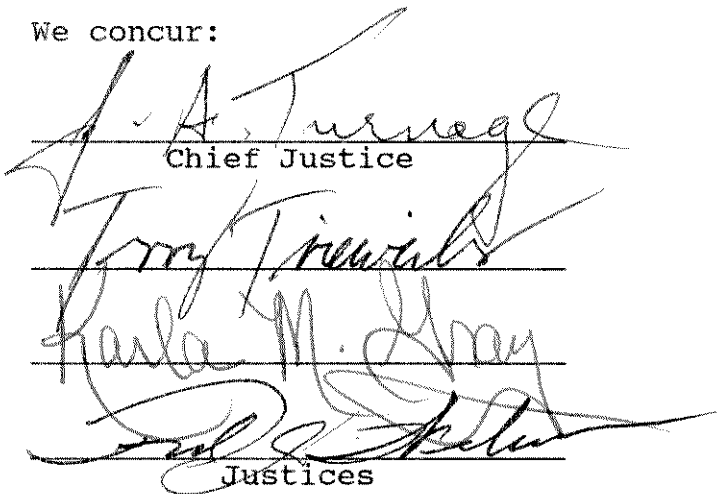 We concur:
J. A. Turnage
Chief Justice
Terry Trieweiler
Karla M. Gray
Justices